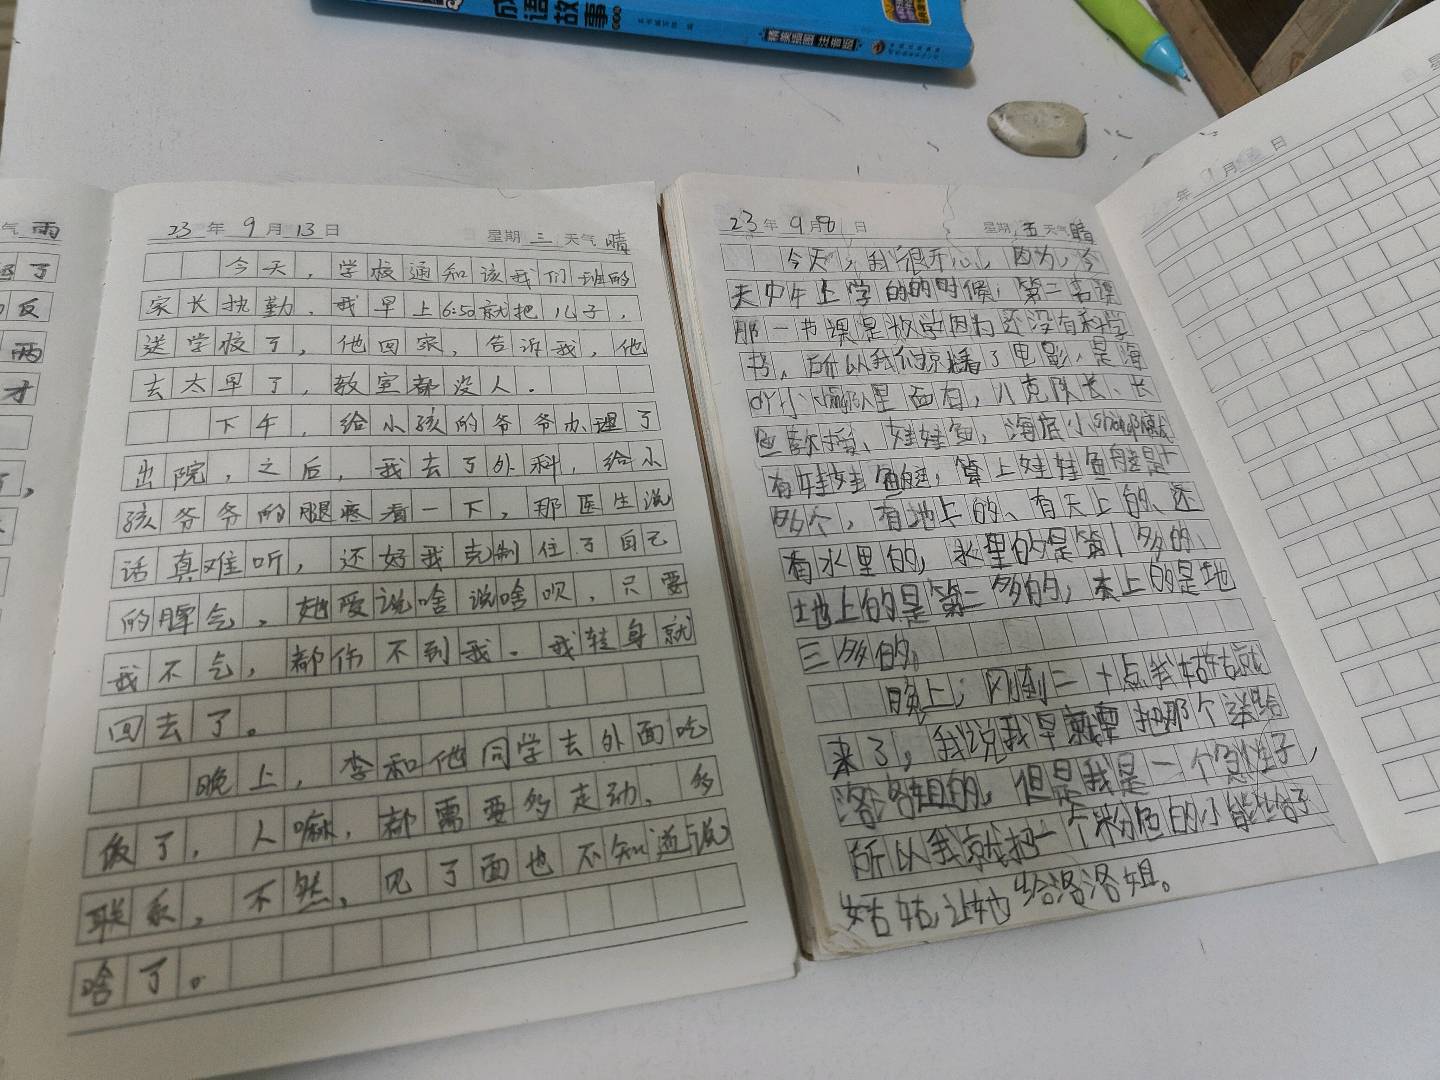 成语故事
精美插图 注音版
气 雨
了
反
两
才
23 年 9 月 13 日 星期 三 天气 晴
今天，学校通知该我们班的
家长执勤，我早上6:50就把儿子，
送学校了，他回家，告诉我，他
去太早了，教室都没人．
下午，给小孩的爷爷办理了
出院，之后，我去了外科，给小
孩爷爷的腿疼看一下，那医生说
话真难听，还好我克制住了自己
的脾气，她爱说啥说啥呗，只要
我不气，都伤不到我．我转身就
回去了。
晚上，李和他同学去外面吃
饭了，人嘛，都需要多走动、多
联系，不然，见了面也不知道说
啥了。
23 年 9 月 8 日 星期 五 天气 晴
今天，我很开心，因为，今
天中午上学的的时候，第二节课
那一节课是 因为还没有科学
书，所以我们 播了电影，是海
小 队里面有，八克队长、
，海底小
有娃娃鱼艇，算上娃娃鱼艇是十
多个，有地上的、有天上的、还
有水里的，水里的是第1多的、
地上的是第二多的，天上的是地
三多的。
晚上，刚到二十点我姑姑就
来了，我说我早就要把那个送给
洛洛姐的，但是我是一个急性子，
所以我就把一个粉色的小 给
姑姑，让她给洛洛姐。
年 1 月 日